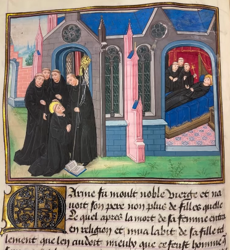 Marine fu moult noble vierge et na
voit son pere non plus de filles quelle
Le quel apres la mort de sa femme entra
en religion et mua labit de sa fille tel
lement que len cuidoit mieulx que ce feust homme